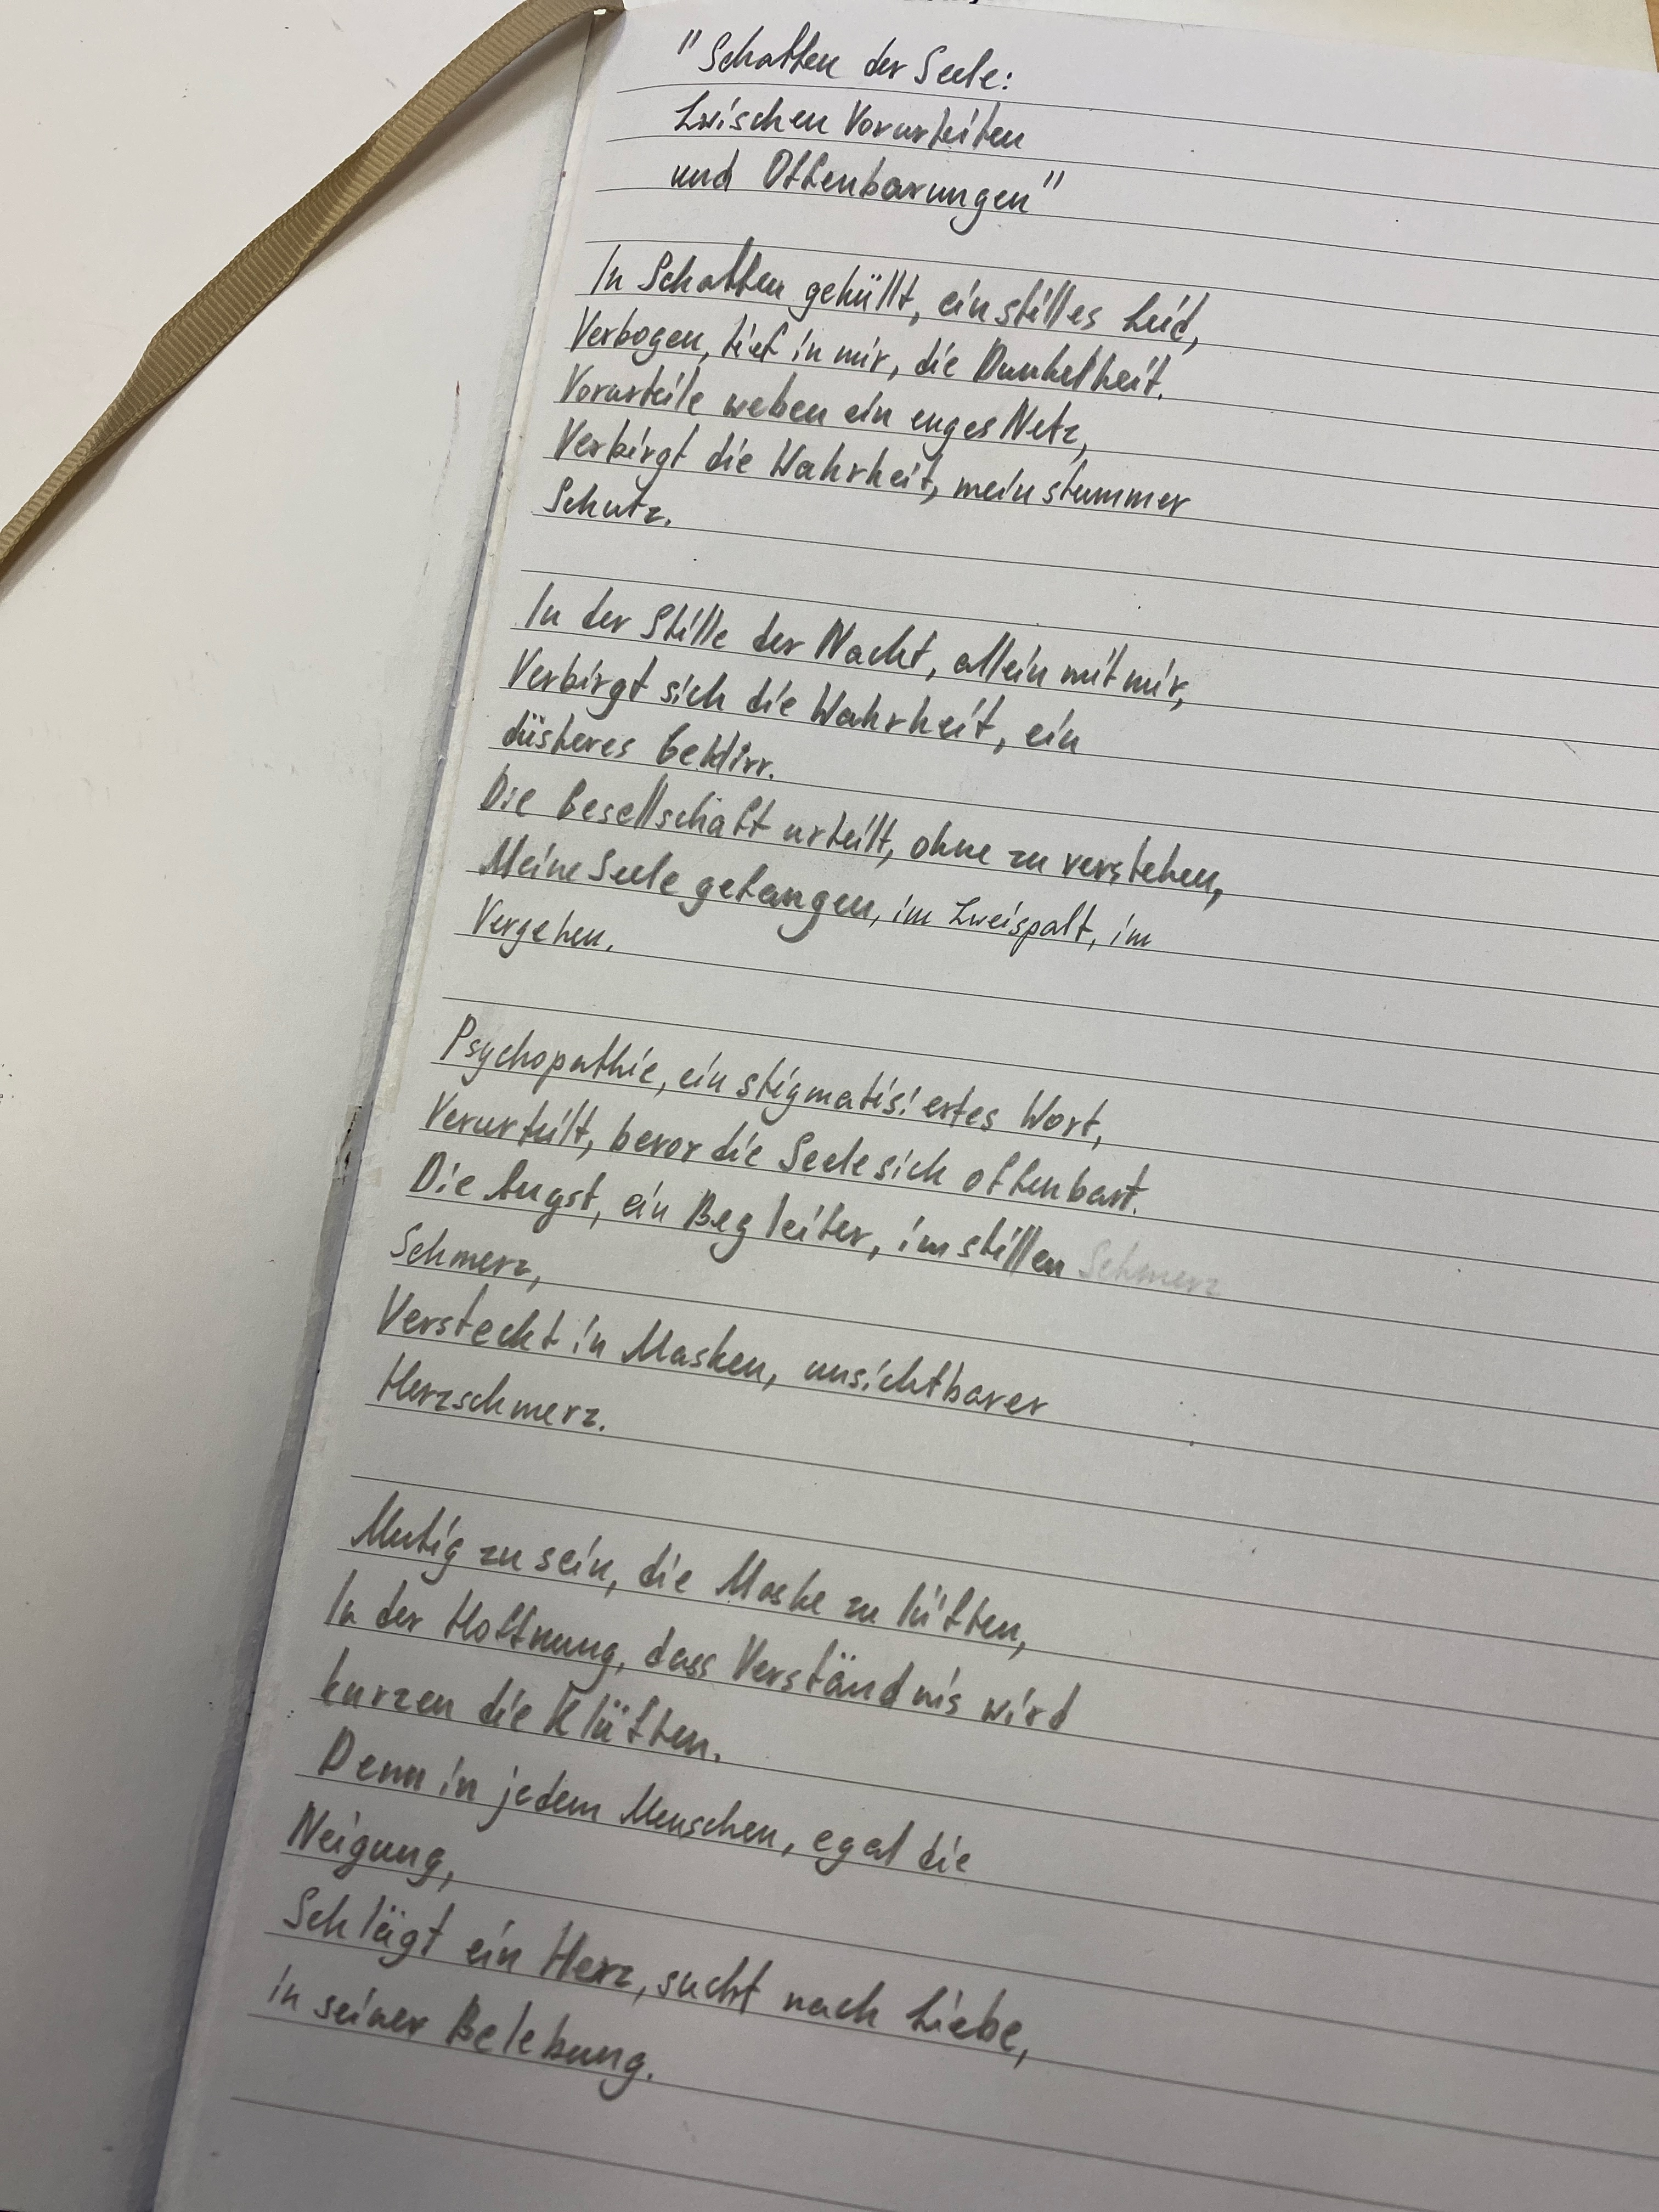 "Schatten der Seele:
Zwischen Vorurteilen
und Offenbarungen"
In Schatten gehüllt, ein stilles Leid,
Verbogen, tief in mir, die Dunkelheit.
Vorurteile weben ein enges Netz,
Verbirgt die Wahrheit, mein stummer
Schutz.
In der Stille der Nacht, allein mit mir,
Verbirgt sich die Wahrheit, ein
düsteres Geklirr.
Die Gesellschaft urteilt, ohne zu verstehen,
Meine Seele gefangen, im Zweispalt, im
Vergehen.
Psychopathie, ein stigmatisiertes Wort,
Verurteilt, bevor die Seele sich offenbart.
Die Angst, ein Begleiter, im stillen Schmerz
Schmerz,
Versteckt in Masken, unsichtbarer
Herzschmerz.
Mutig zu sein, die Maske zu lüften,
In der Hoffnung, dass Verständnis wird
kurzen die Klüften.
Denn in jedem Menschen, egal die
Neigung,
Schlägt ein Herz, sucht nach Liebe,
in seiner Belebung.